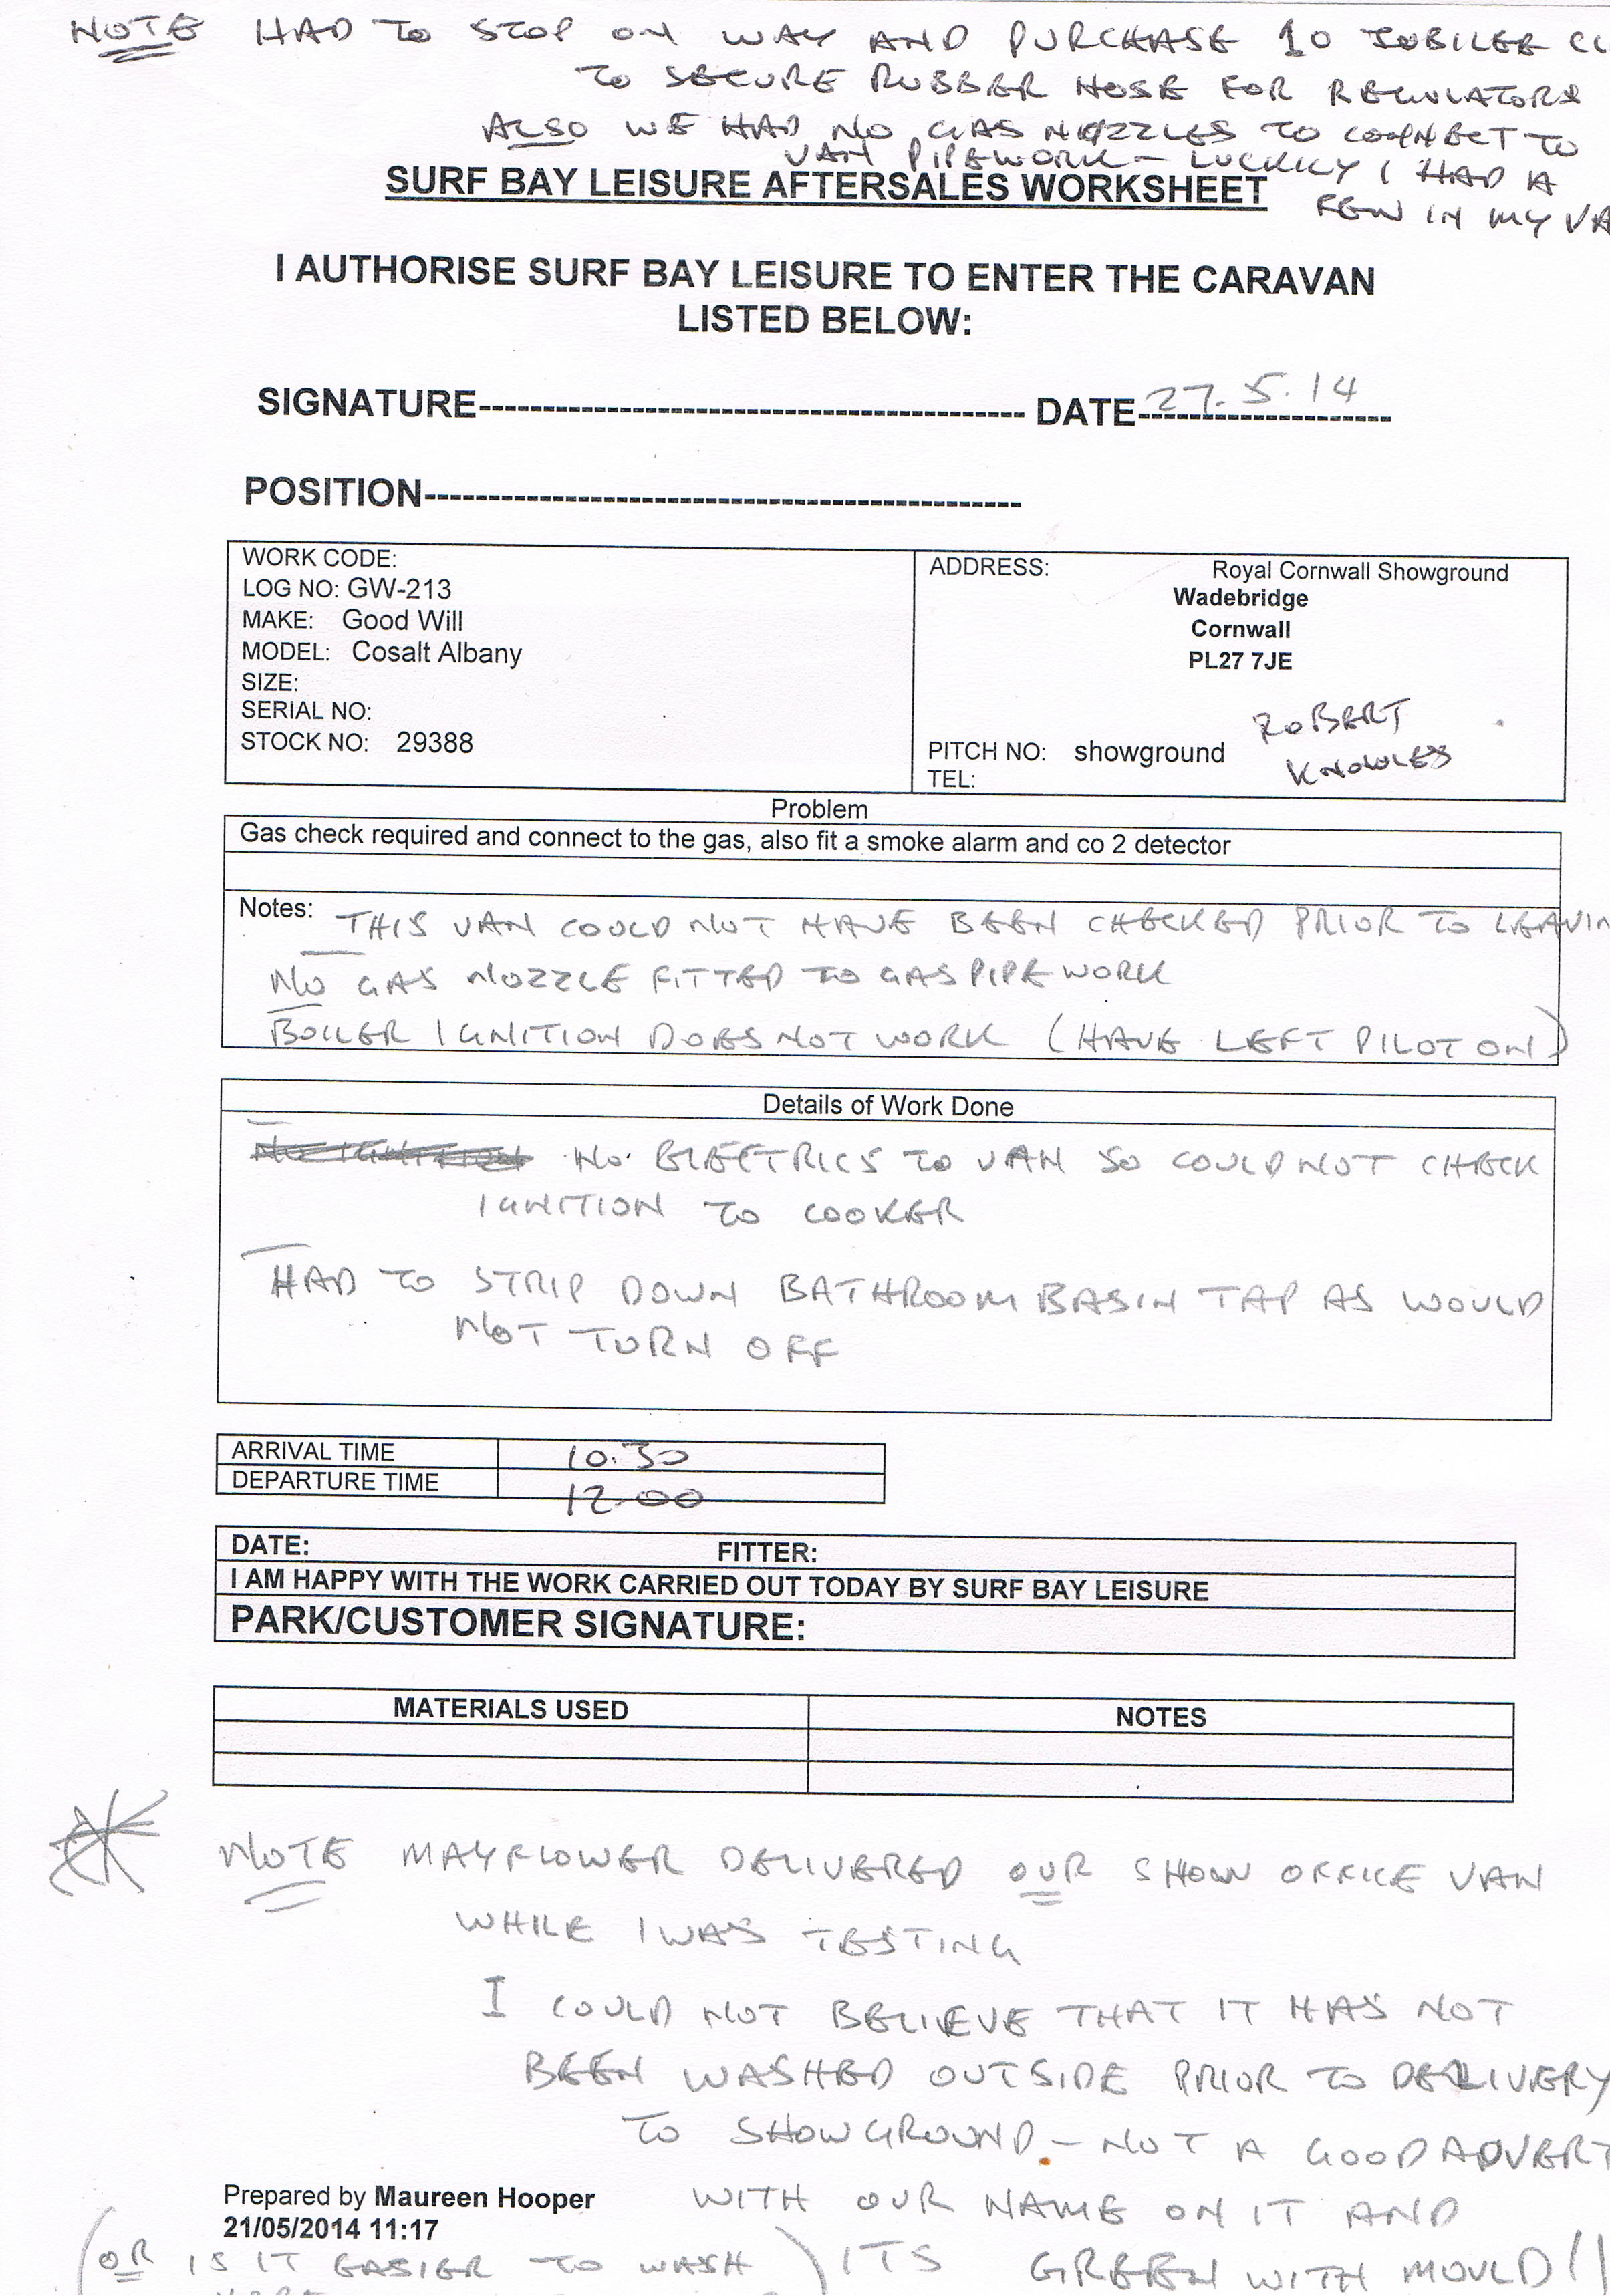 NOTE HAD TO STOP ON WAY AND PURCHASE 10 JUBILEE CL
TO SECURE RUBBER HOSE FOR REGULATORS
ALSO WE HAD NO GAS NOZZLES TO CONNECT TO
VAN PIPEWORK - LUCKILY I HAD A
FEW IN MY VA
SURF BAY LEISURE AFTERSALES WORKSHEET
I AUTHORISE SURF BAY LEISURE TO ENTER THE CARAVAN
LISTED BELOW:
SIGNATURE------------------------------------------- DATE 27.5.14
POSITION-----------------------------------------------
WORK CODE:
LOG NO: GW-213
MAKE: Good Will
MODEL: Cosalt Albany
SIZE:
SERIAL NO:
STOCK NO: 29388
ADDRESS: Royal Cornwall Showground
Wadebridge
Cornwall
PL27 7JE
ROBERT
KNOWLES
PITCH NO: showground
TEL:
Problem
Gas check required and connect to the gas, also fit a smoke alarm and co 2 detector
Notes: THIS VAN COULD NOT HAVE BEEN CHECKED PRIOR TO LEAVIN
NO GAS NOZZLE FITTED TO GAS PIPEWORK
BOILER IGNITION DOES NOT WORK (HAVE LEFT PILOT ON)
Details of Work Done
NO ELECTRICS TO VAN SO COULD NOT CHECK
IGNITION TO COOKER
HAD TO STRIP DOWN BATHROOM BASIN TAP AS WOULD
NOT TURN OFF
ARRIVAL TIME 10.30
DEPARTURE TIME 12.00
DATE: FITTER:
I AM HAPPY WITH THE WORK CARRIED OUT TODAY BY SURF BAY LEISURE
PARK/CUSTOMER SIGNATURE:
MATERIALS USED NOTES
NOTE MAYFLOWER DELIVERED OUR SHOW OFFICE VAN
WHILE I WAS TESTING
I COULD NOT BELIEVE THAT IT HAS NOT
BEEN WASHED OUTSIDE PRIOR TO DELIVERY
TO SHOWGROUND - NOT A GOOD ADVERT
WITH OUR NAME ON IT AND
ITS GREEN WITH MOULD!!
Prepared by Maureen Hooper
21/05/2014 11:17
(OR IS IT EASIER TO WASH)